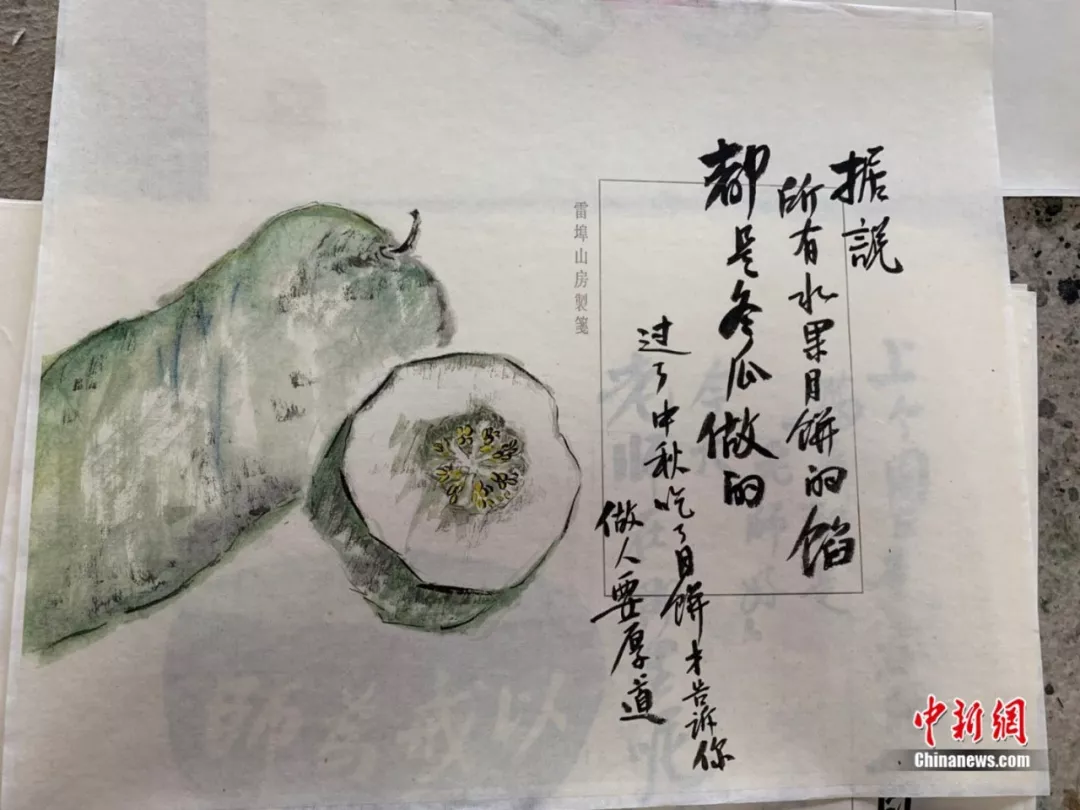 据説
所有水果月餅的馅
都是冬瓜做的
过了中秋吃了月餅才告訴你
做人要厚道
雷埠山房製箋
以
上
中新网
Chinanews.com